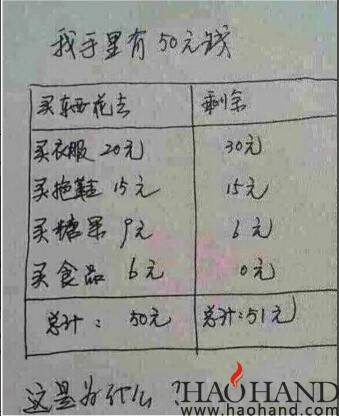 我手里有50元钱
买东西花去 剩余
买衣服 20元 30元
买拖鞋 15元 15元
买糖果 9元 6元
买食品 6元 0元
总计: 50元 总计:51元
这是为什么?
HAOHAND
www.haohand.com